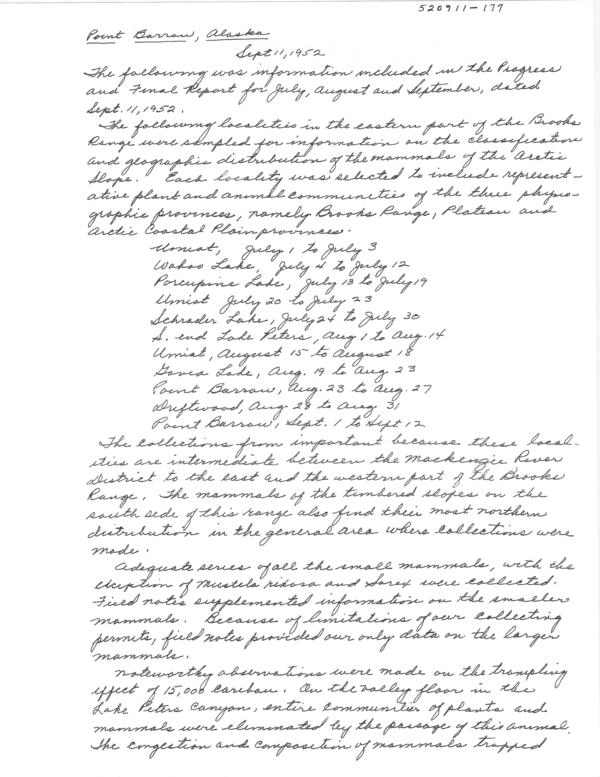 520911-177
Point Barrow, Alaska
Sept 11, 1952
The following was information included in the Progress
and Final Report for July, August and September, dated
Sept. 11, 1952.
The following localities in the eastern part of the Brooks
Range were sampled for information on the classification
and geographic distribution of the mammals of the Arctic
Slope. Each locality was selected to include represent-
ative plant and animal communities of the three physio-
graphic provinces, namely Brooks Range, Plateau and
Arctic Coastal Plain provinces.
Umiat, July 1 to July 3
Wahoo Lake, July 4 to July 12
Porcupine Lake, July 13 to July 19
Umiat July 20 to July 23
Schrader Lake, July 24 to July 30
S. end Lake Peters, Aug 1 to Aug. 14
Umiat, August 15 to August 18
Gavia Lake, Aug. 19 to Aug 23
Point Barrow, Aug. 23 to Aug. 27
Driftwood, Aug 28 to Aug. 31
Point Barrow, Sept. 1 to Sept 12
The collections from important because these local-
ities are intermediate between the Mackenzie River
District to the east and the western part of the Brooks
Range. The mammals of the timbered slopes on the
south side of this range also find their most northern
distribution in the general area where collections were
made.
Adequate series of all the small mammals, with the
exception of Mustela rixosa and Sorex were collected.
Field notes supplemented information on the smaller
mammals. Because of limitations of our collecting
permits, field notes provided our only data on the larger
mammals.
Noteworthy observations were made on the trampling
effect of 15,000 caribou. On the valley floor in the
Lake Peters Canyon, entire communities of plants and
mammals were eliminated by the passage of this animal.
The congestion and composition of mammals trapped